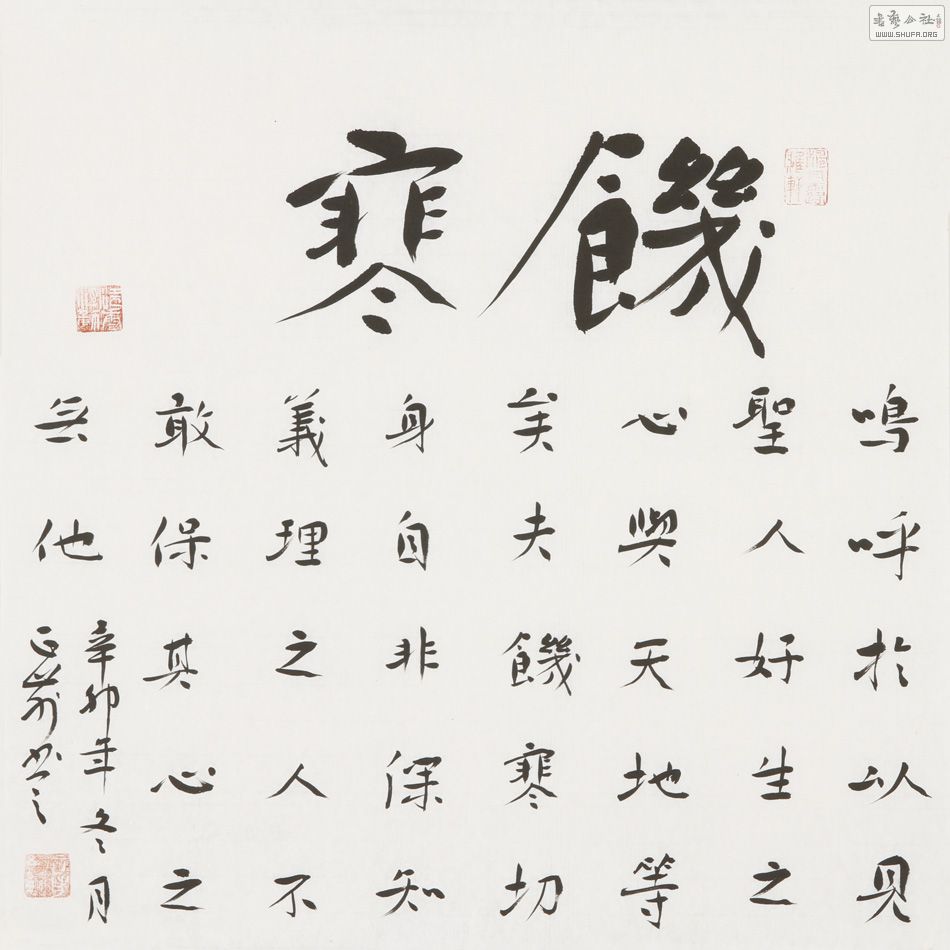 書藝公社
WWW.SHUFA.ORG
饑寒
嗚呼於以見
聖人好生之
心與天地等
矣夫饑寒切
身自非深知
義理之人不
敢保其心之
無他
辛卯年冬月
正前书之